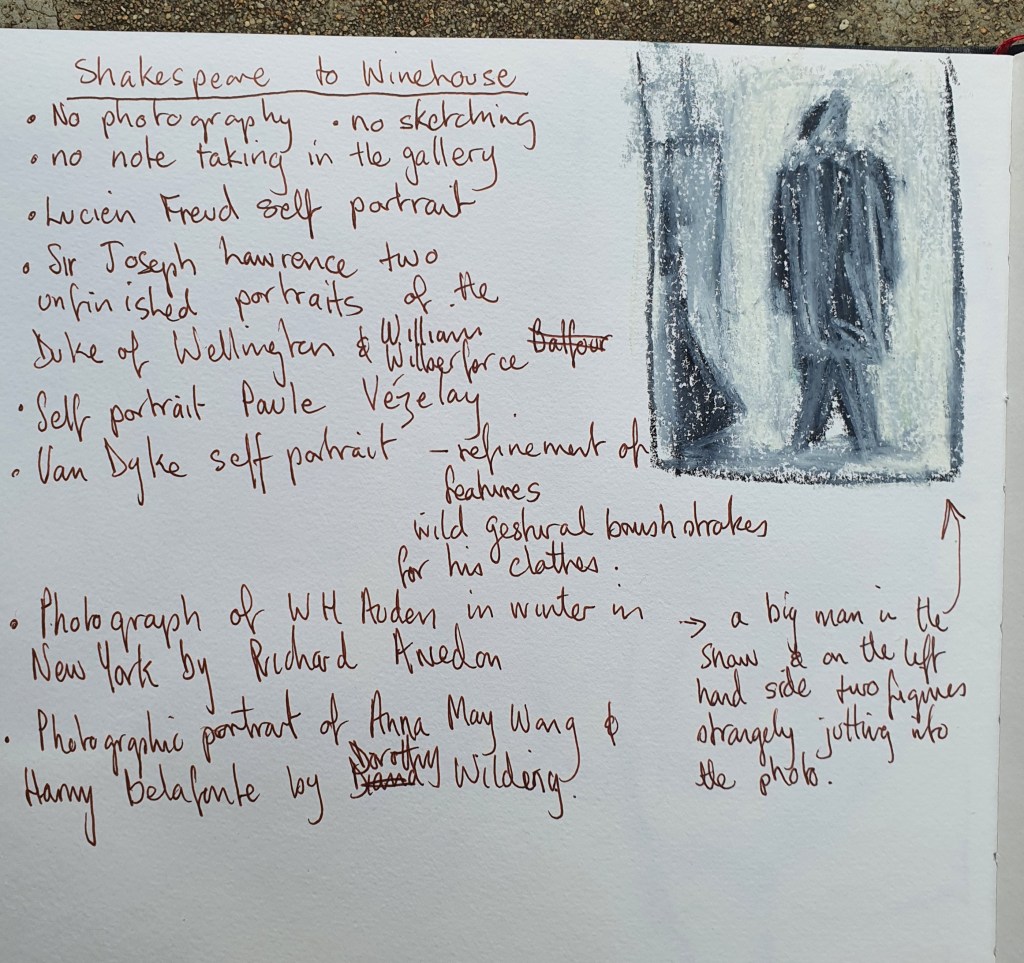 Shakespeare to Winehouse
• No photography • no sketching
• no note taking in the gallery
• Lucien Freud self portrait
• Sir Joseph Lawrence two
unfinished portraits of the
Duke of Wellington & William Wilberforce Balfour
• Self portrait Paule Vézelay
• Van Dyke self portrait – refinement of
features
wild gestural brush strokes
for his clothes.
• Photograph of WH Auden in winter in
New York by Richard Avedon
• Photographic portrait of Anna May Wong &
Harry Belafonte by Dorothy Wilding.
→ a big man in the
snow & on the left
hand side two figures
strangely jutting into
the photo.